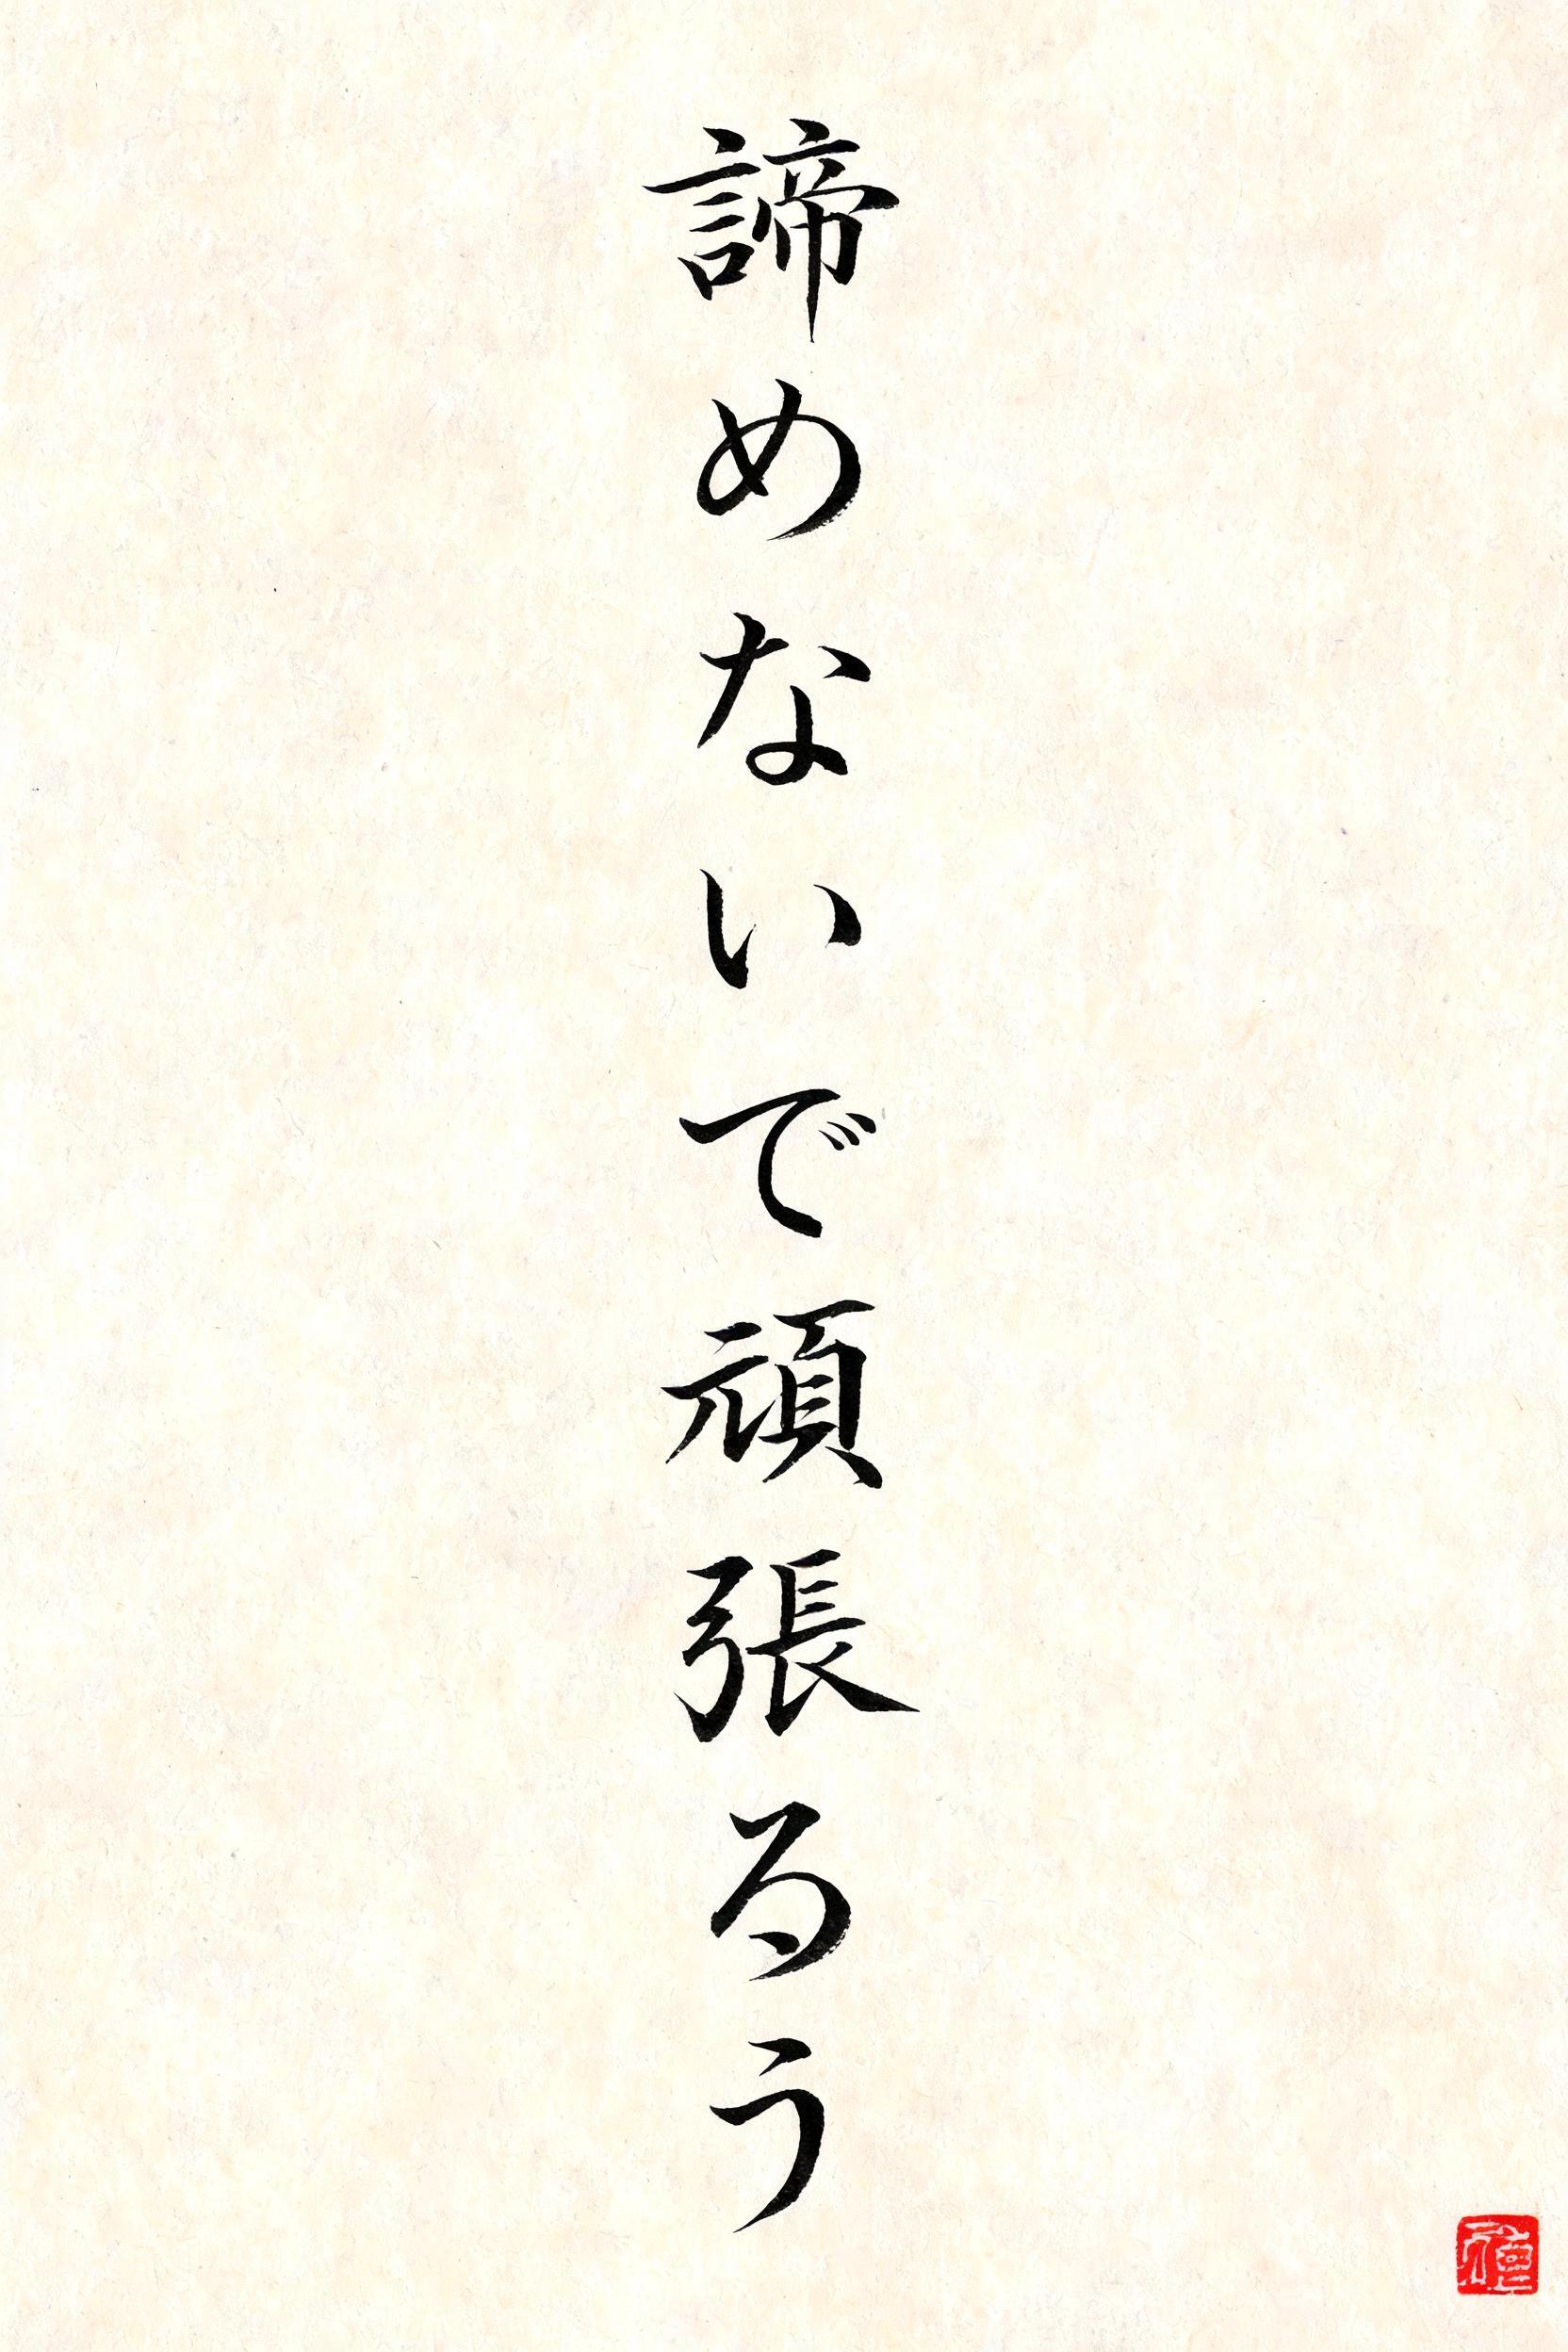 諦めないで頑張るう